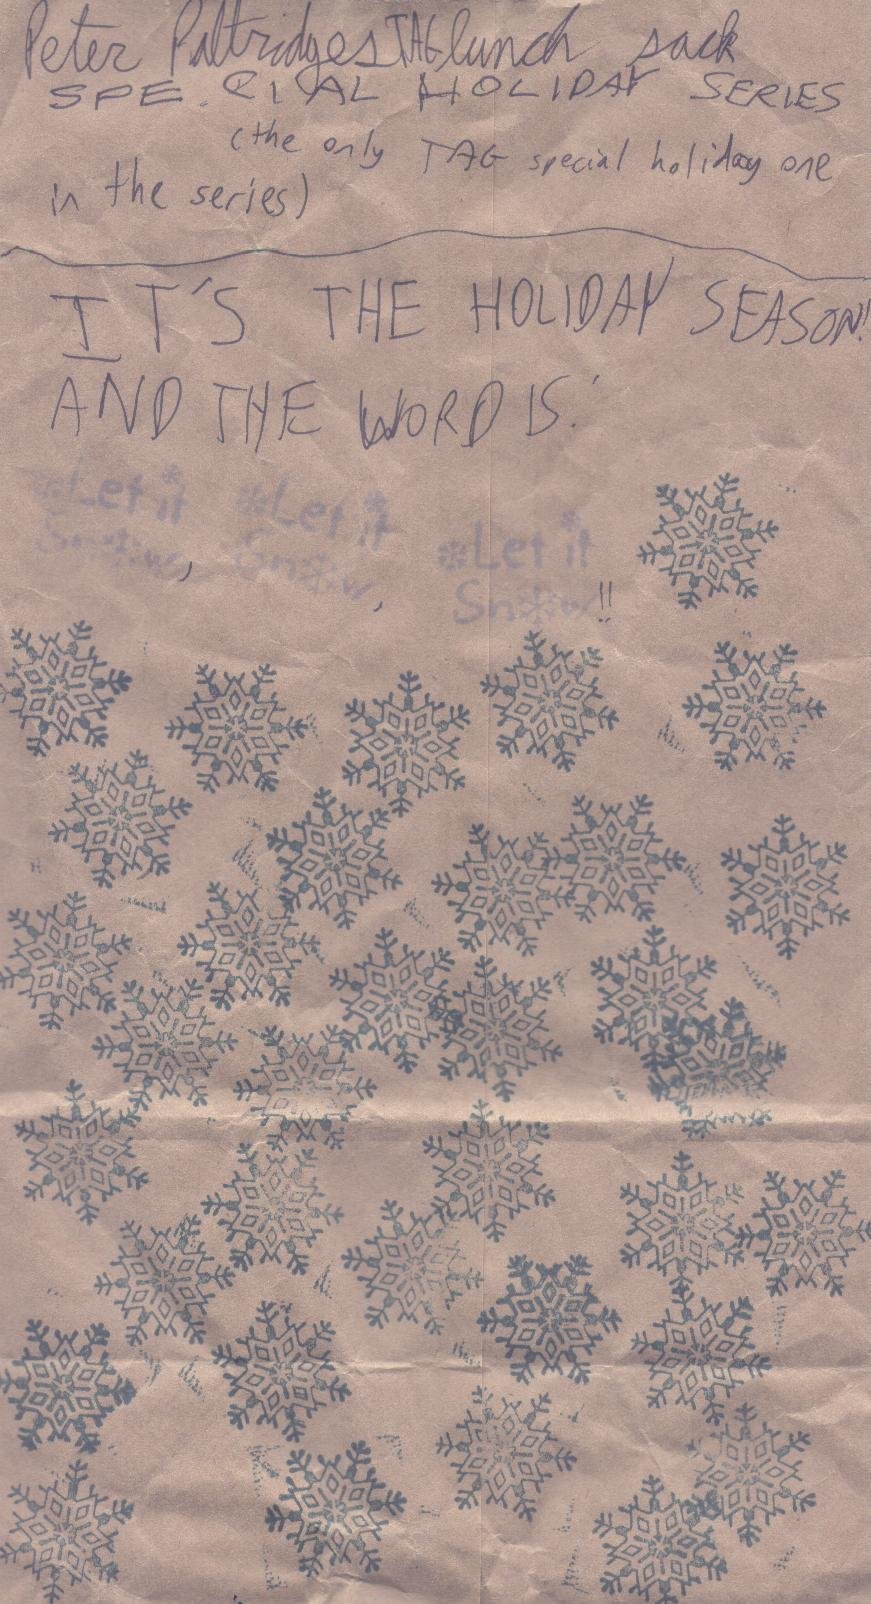 Peter Paltridges TAG lunch sack
SPE.CIAL HOLIDAY SERIES
(the only TAG special holiday one
in the series)
IT'S THE HOLIDAY SEASON!
AND THE WORD IS:
Let it Let it Let it
Snow, Snow, Snow!!